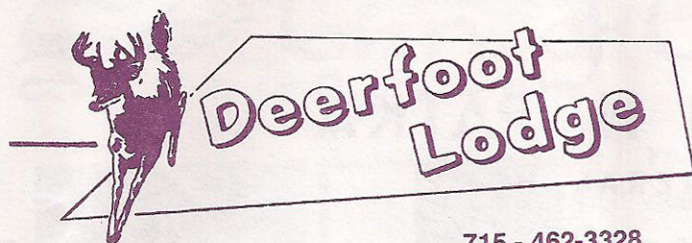 Deerfoot
Lodge
715 - 462-3328